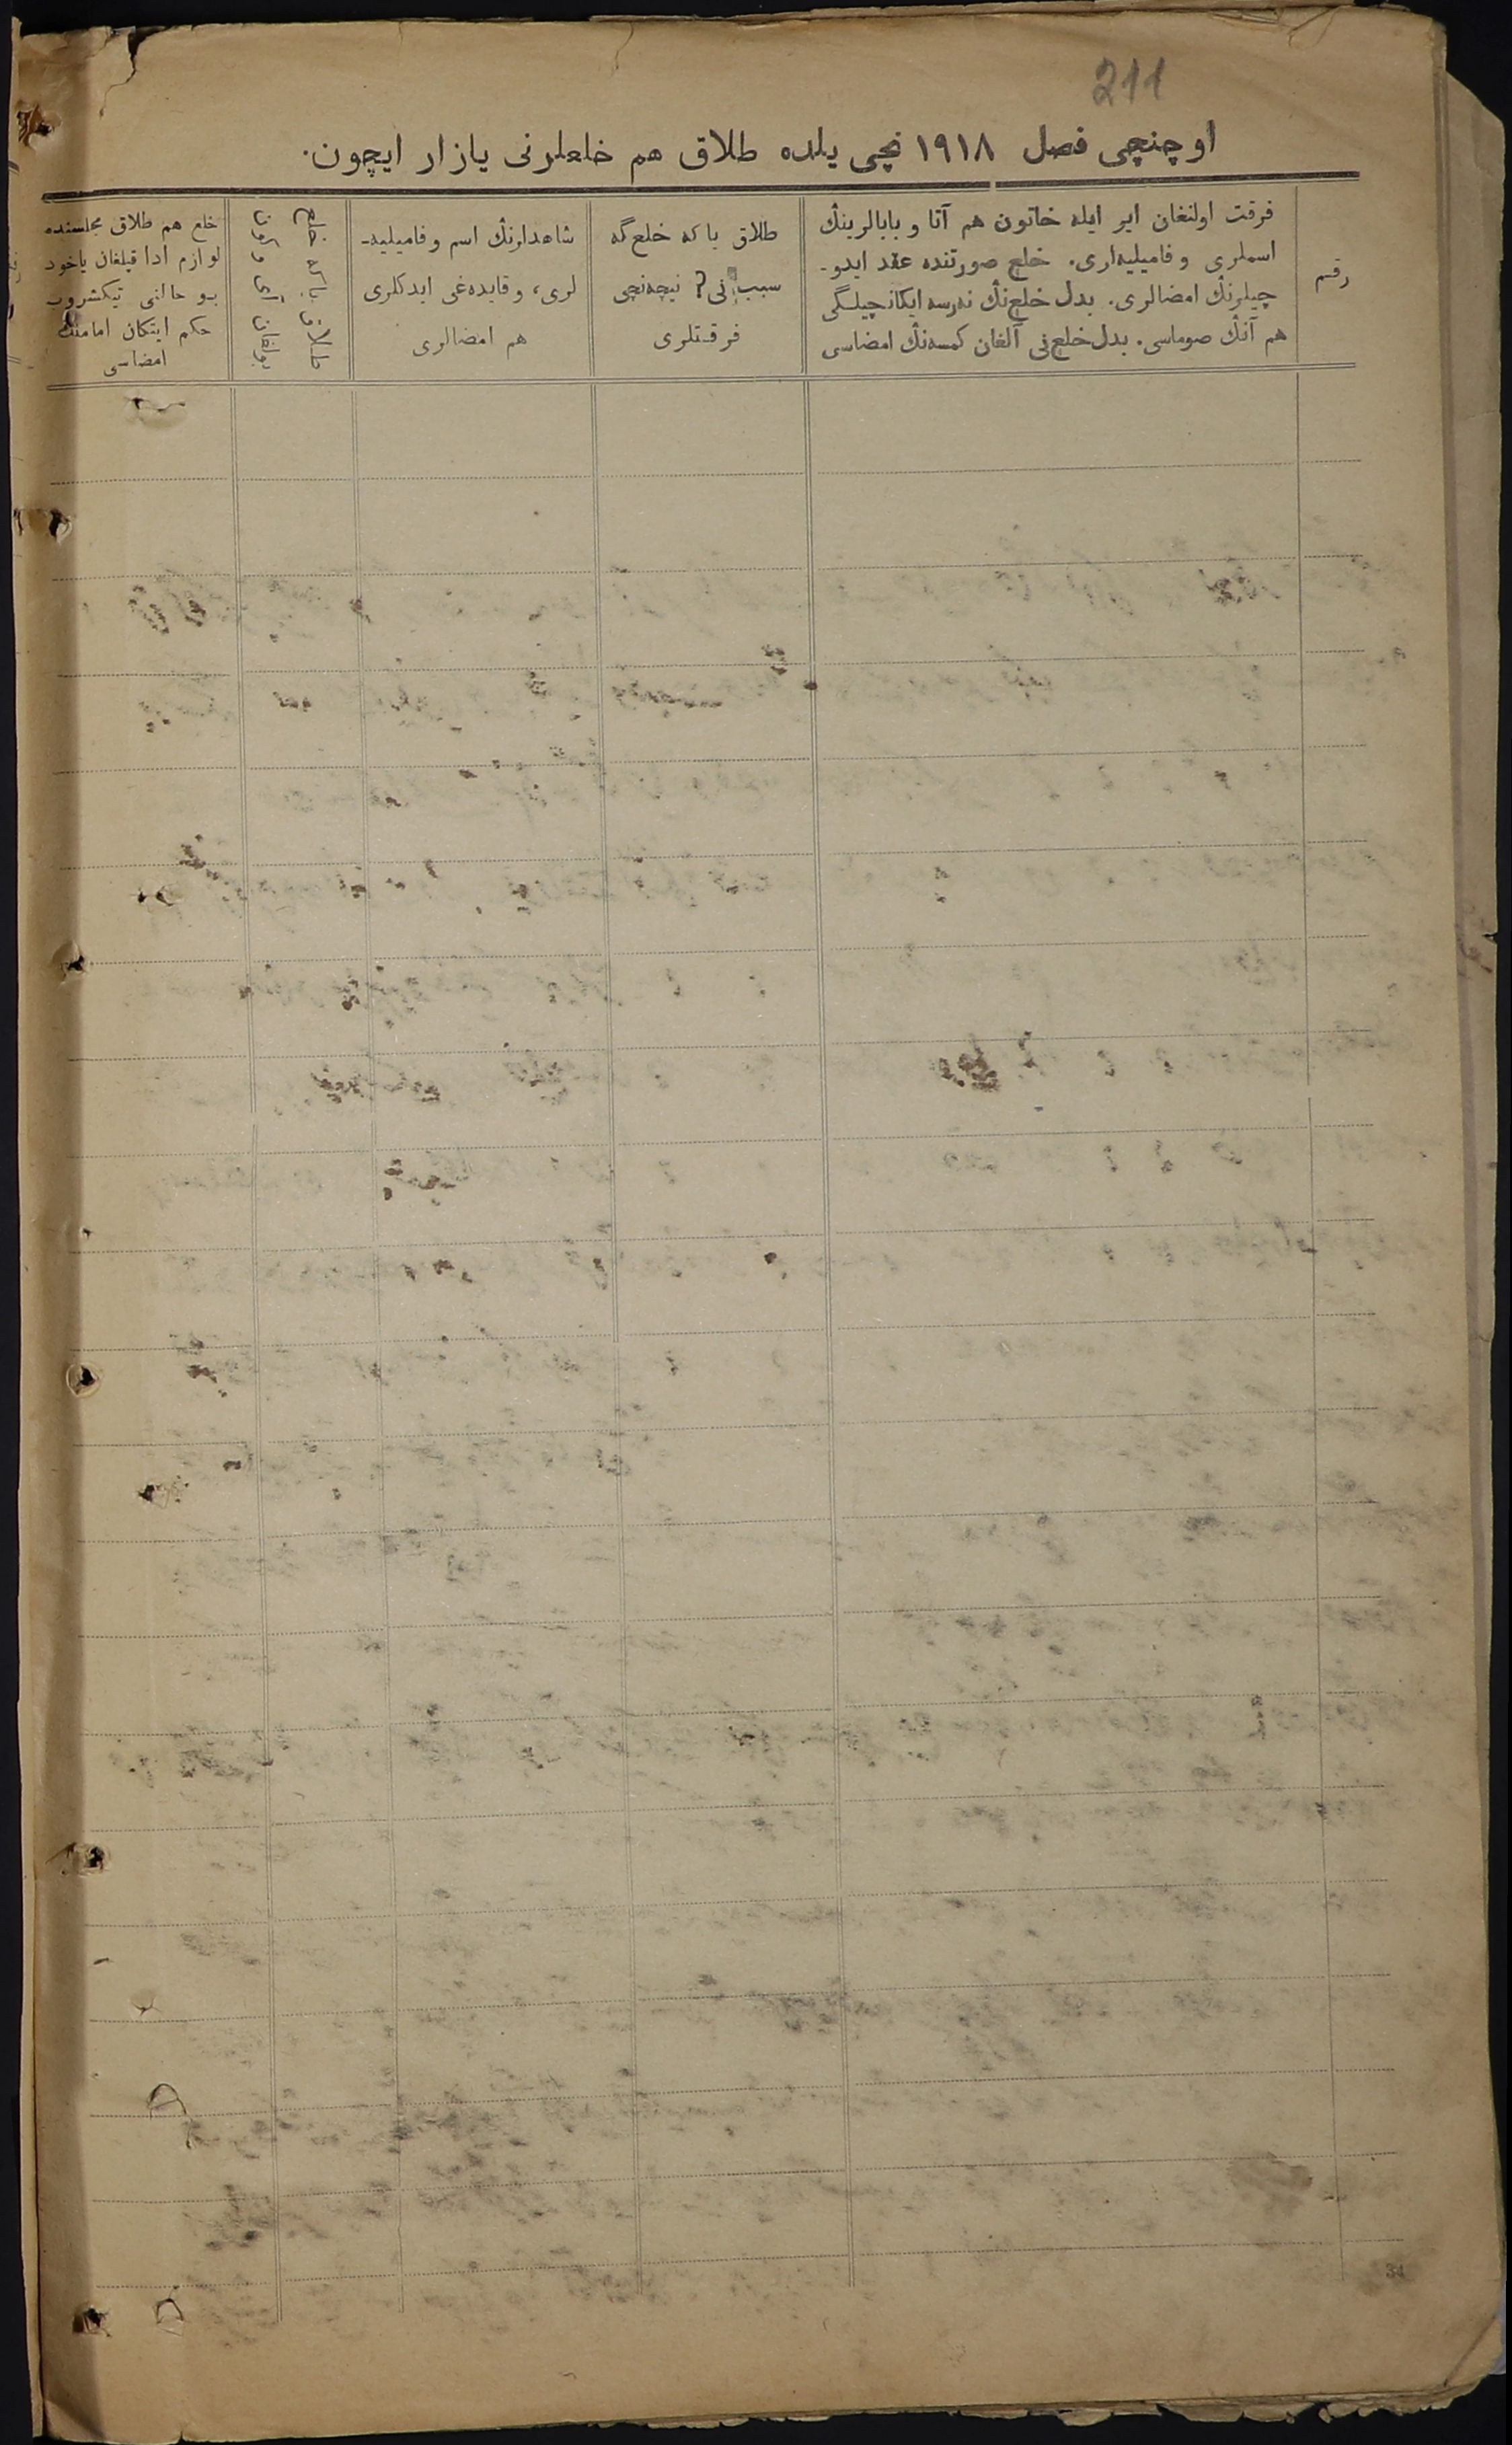 211
اوچنچی فصل ١٩١٨ نچی یلده طلاق هم خلعلرنی یازار ایچون.
رقم
فرقت اولنغان ایر ایله خاتون هم آتا و بابالرینڭ
اسملری و فامیلیه‌لری. خلع صورتنده عقد ایدو-
چیلرنڭ امضالری. بدل خلع‌نڭ نه‌رسه ایکانچیلگی
هم آنڭ صوماسی. بدل خلع‌نی آلغان کمسه‌نڭ امضاسی
طلاق یا که خلع گه
سبب نی؟ نیچه‌نچی
فرقتلری
شاهدلرنڭ اسم و فامیلیه-
لری، و قایده‌غی ایدکلری
هم امضالری
خلع یا که طلاق
بولغان آی و کون
خلع هم طلاق مجلسنده
لوازم ادا قیلغان یاخود
بو حالنی تیکشروب
حکم ایتکان امامنڭ
امضاسی
34